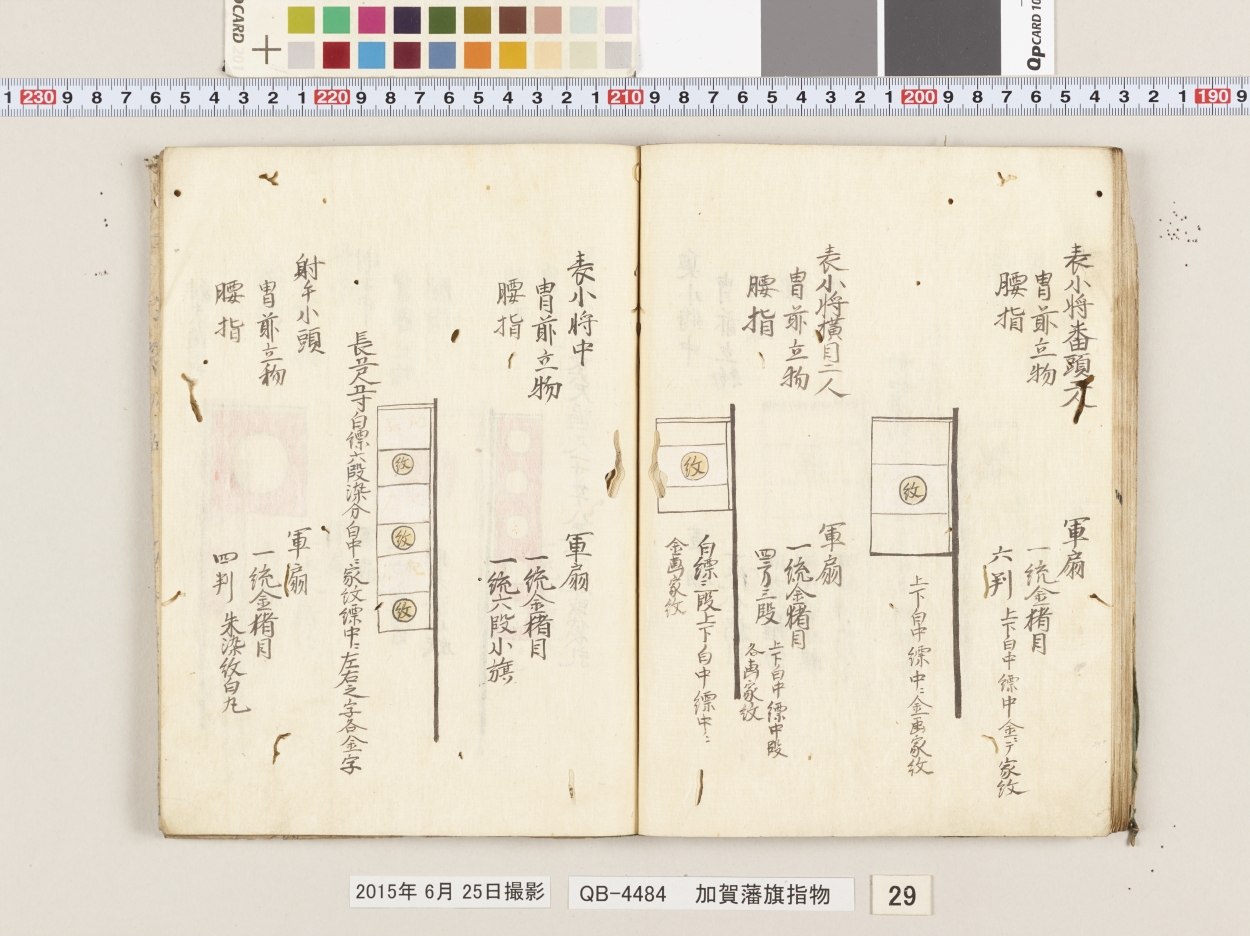 QPCARD 201
QPCARD 10
1 230 9 8 7 6 5 4 3 2 1 220 9 8 7 6 5 4 3 2 1 210 9 8 7 6 5 4 3 2 1 200 9 8 7 6 5 4 3 2 1 190 9
表小将番頭
冑前立物
腰指
軍扇
一統金猪目
六判
上下白中縹中金ニテ家紋
紋
上下白中縹中ニ金画家紋
表小将横目二人
冑前立物
腰指
軍扇
一統金猪目
四方三段
上下白中縹中段
各画家紋
紋
白縹三段上下白中縹中ニ
金画家紋
表小将中
冑前立物
腰指
軍扇
一統金猪目
一統六段小旗
紋
紋
紋
白縹六段染分白中ニ家紋縹中ニ左右之字各金字
射手小頭
冑前立物
腰指
軍扇
一統金猪目
四判
朱染紋白丸
2015年 6月 25日撮影
QB-4484 加賀藩旗指物
29